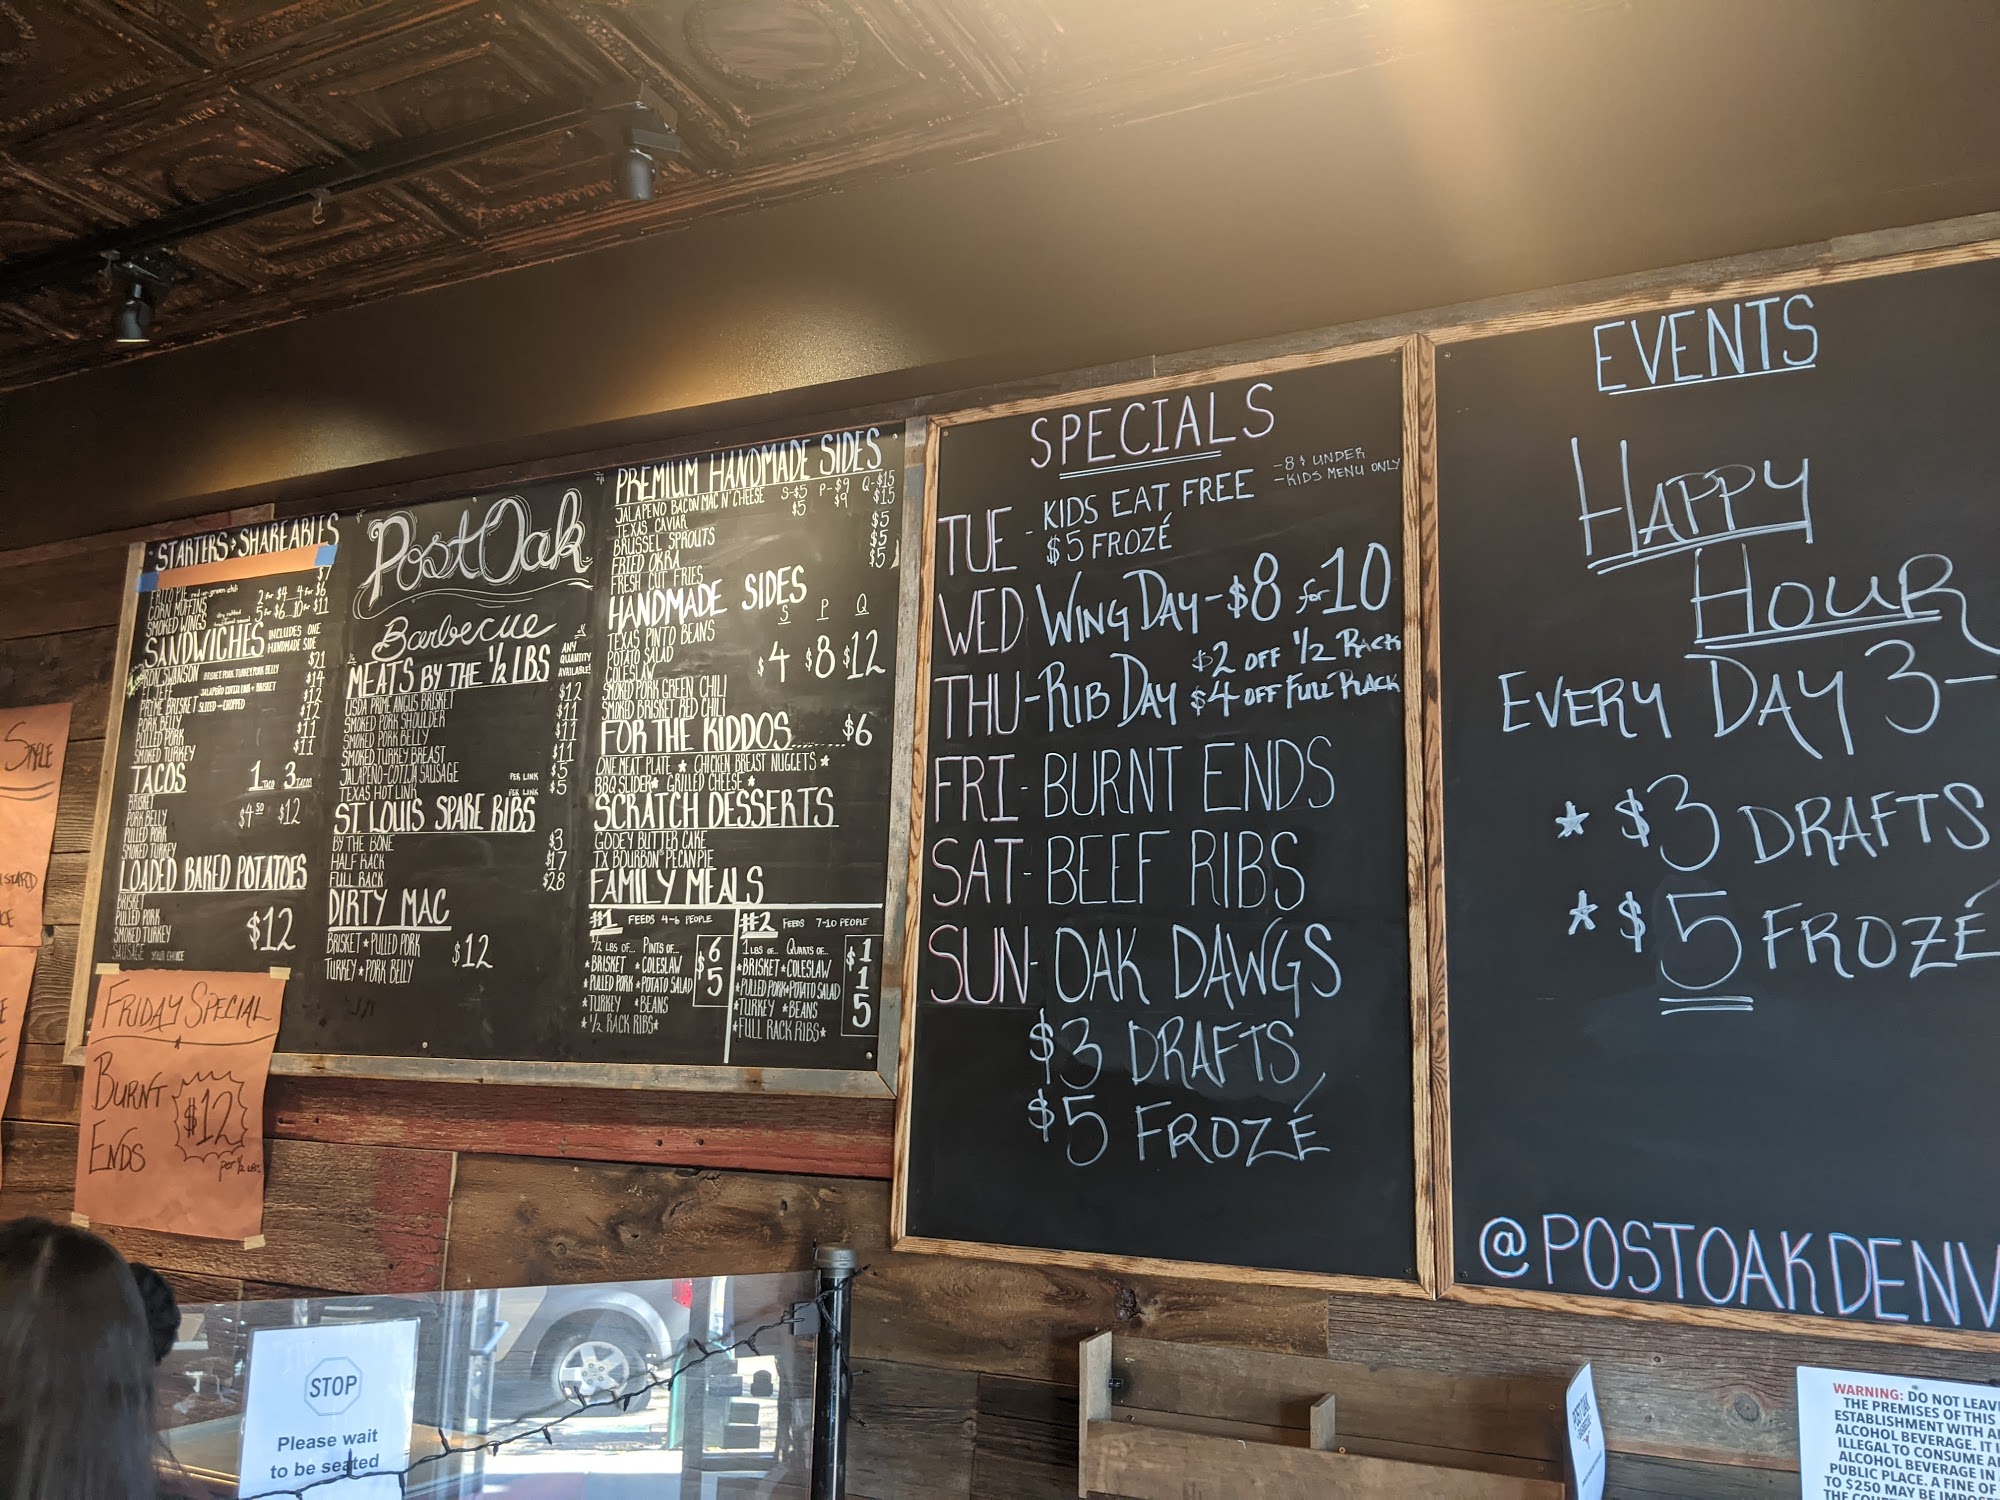 STYLE
STARTERS & SHAREABLES
$7
FRITO PIE red or green chili
CORN MUFFINS 2 for $4 4 for $6
SMOKED WINGS 5 for $6 10 for $11
SANDWICHES INCLUDES ONE HANDMADE SIDE
RON SWANSON BRISKET, PORK, TURKEY, PORK BELLY $21
EL JEFE JALAPEÑO COTIJA LINK + BRISKET $14
PRIME BRISKET SLICED OR CHOPPED $12
PORK BELLY $12
PULLED PORK $11
SMOKED TURKEY $11
TACOS 1 TACO 3 TACOS
BRISKET
PORK BELLY $4.50 $12
PULLED PORK
SMOKED TURKEY
LOADED BAKED POTATOES
BRISKET
PULLED PORK $12
SMOKED TURKEY
SAUSAGE YOUR CHOICE
FRIDAY SPECIAL
BURNT ENDS
$12
per ½ LBS.
Post Oak
Barbecue
MEATS BY THE ½ LBS
ANY QUANTITY AVAILABLE!
USDA PRIME ANGUS BRISKET $12
SMOKED PORK SHOULDER $11
SMOKED PORK BELLY $11
SMOKED TURKEY BREAST $11
JALAPEÑO-COTIJA SAUSAGE PER LINK $5
TEXAS HOT LINK PER LINK $5
ST. LOUIS SPARE RIBS
BY THE BONE $3
HALF RACK $17
FULL RACK $28
DIRTY MAC
BRISKET * PULLED PORK $12
TURKEY * PORK BELLY
PREMIUM HANDMADE SIDES
JALAPEÑO BACON MAC N' CHEESE S-$5 P-$9 Q-$15
TEXAS CAVIAR $5 $9 $15
BRUSSEL SPROUTS $5
FRIED OKRA $5
FRESH CUT FRIES $5
HANDMADE SIDES
S P Q
TEXAS PINTO BEANS
POTATO SALAD
COLESLAW $4 $8 $12
SMOKED PORK GREEN CHILI
SMOKED BRISKET RED CHILI
FOR THE KIDDOS $6
ONE MEAT PLATE * CHICKEN BREAST NUGGETS *
BBQ SLIDER * GRILLED CHEESE *
SCRATCH DESSERTS
GOOEY BUTTER CAKE
TX BOURBON PECAN PIE
FAMILY MEALS
#1 FEEDS 4-6 PEOPLE
½ LBS OF... PINTS OF...
* BRISKET * COLESLAW
* PULLED PORK * POTATO SALAD
* TURKEY * BEANS
* ½ RACK RIBS *
$65
#2 FEEDS 7-10 PEOPLE
1 LBS OF... QUARTS OF...
* BRISKET * COLESLAW
* PULLED PORK * POTATO SALAD
* TURKEY * BEANS
* FULL RACK RIBS *
$115
SPECIALS
TUE - KIDS EAT FREE
- 8 & UNDER
- KIDS MENU ONLY
$5 FROZÉ
WED WING DAY - $8 for 10
THU - RIB DAY $2 OFF ½ RACK
$4 OFF FULL RACK
FRI - BURNT ENDS
SAT - BEEF RIBS
SUN - OAK DAWGS
$3 DRAFTS
$5 FROZÉ
EVENTS
HAPPY
HOUR
EVERY DAY 3-
* $3 DRAFTS
* $5 FROZÉ
@POSTOAKDENV
STOP
Please wait
to be seated
WARNING: DO NOT LEAV
THE PREMISES OF THIS
ESTABLISHMENT WITH A
ALCOHOL BEVERAGE. IT I
ILLEGAL TO CONSUME A
ALCOHOL BEVERAGE IN A
PUBLIC PLACE. A FINE OF
TO $250 MAY BE IMPOS